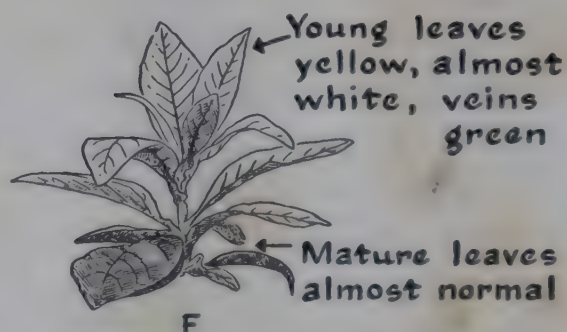 Young leaves
yellow, almost
white, veins
green
Mature leaves
almost normal
F